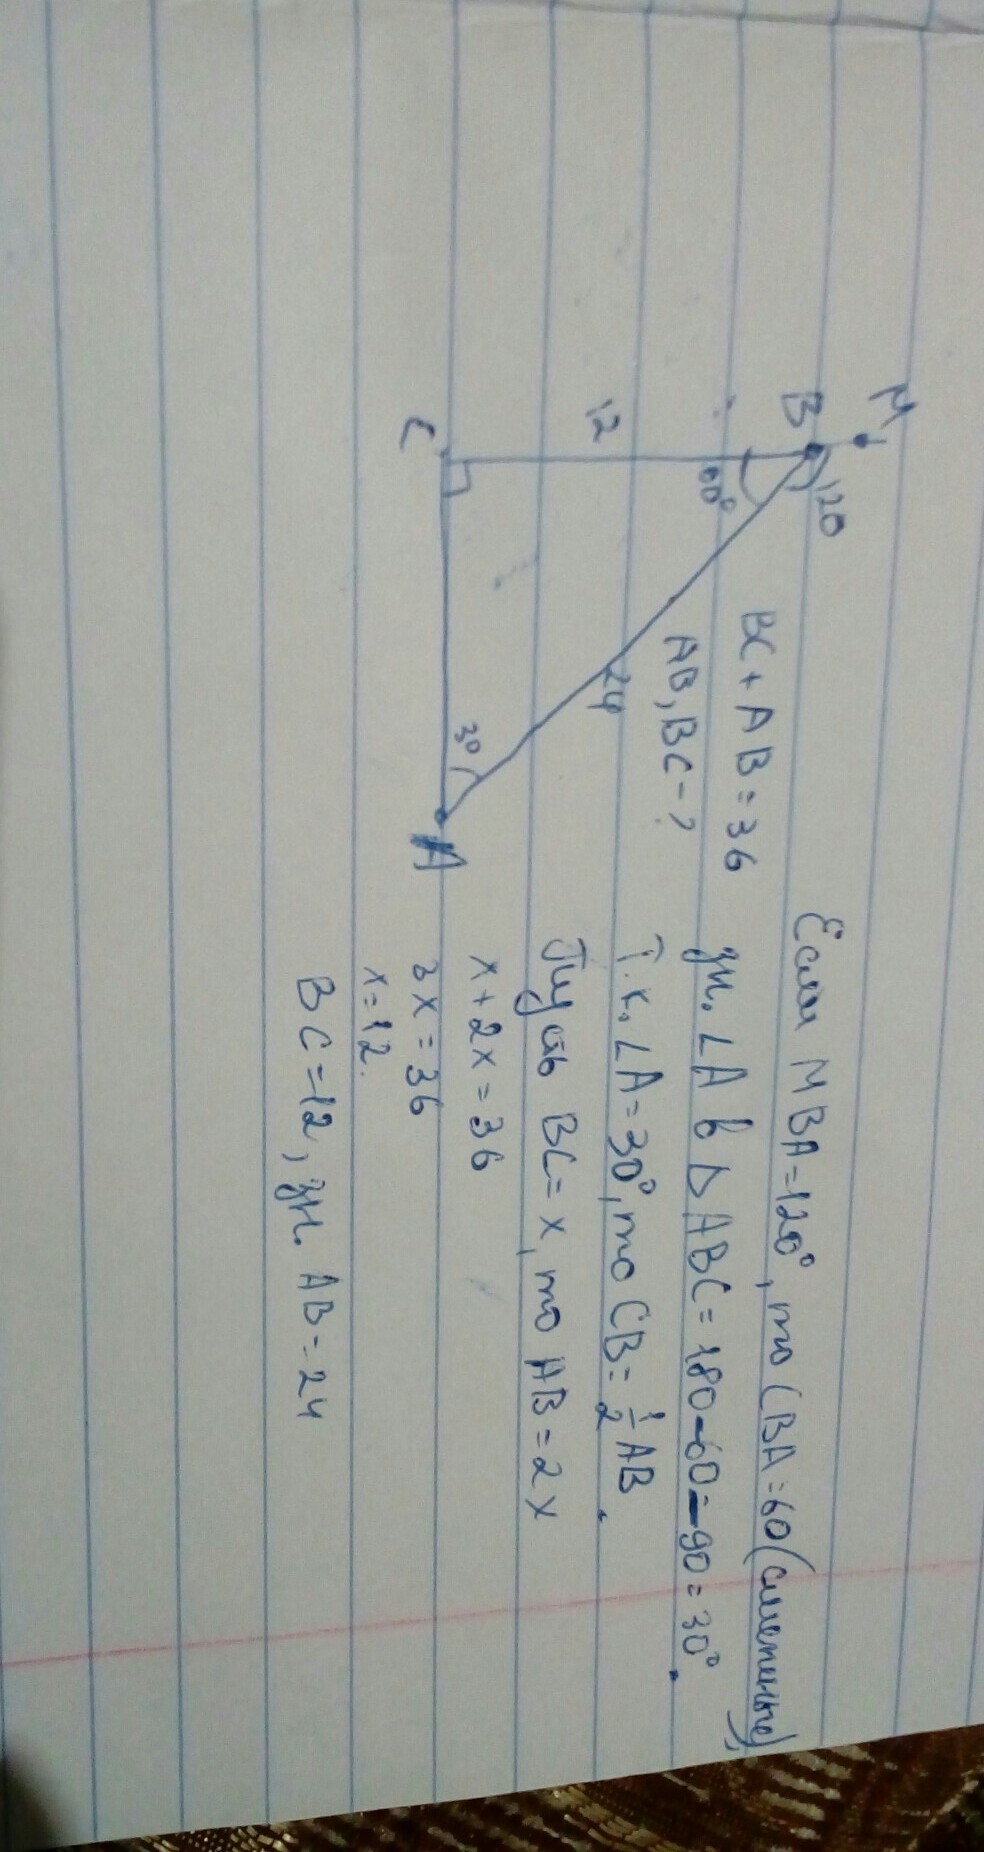 M
B
120
60°
12
24
C
30
A
BC + AB = 36
AB, BC - ?
Если MBA = 120°, то CBA = 60 (смежные),
зн. ∠A в △ABC = 180 - 60 - 90 = 30°.
Т.к. ∠A = 30°, то CB = 1/2 AB.
Пусть BC = x, то AB = 2x
x + 2x = 36
3x = 36
x = 12.
BC = 12, зн. AB = 24